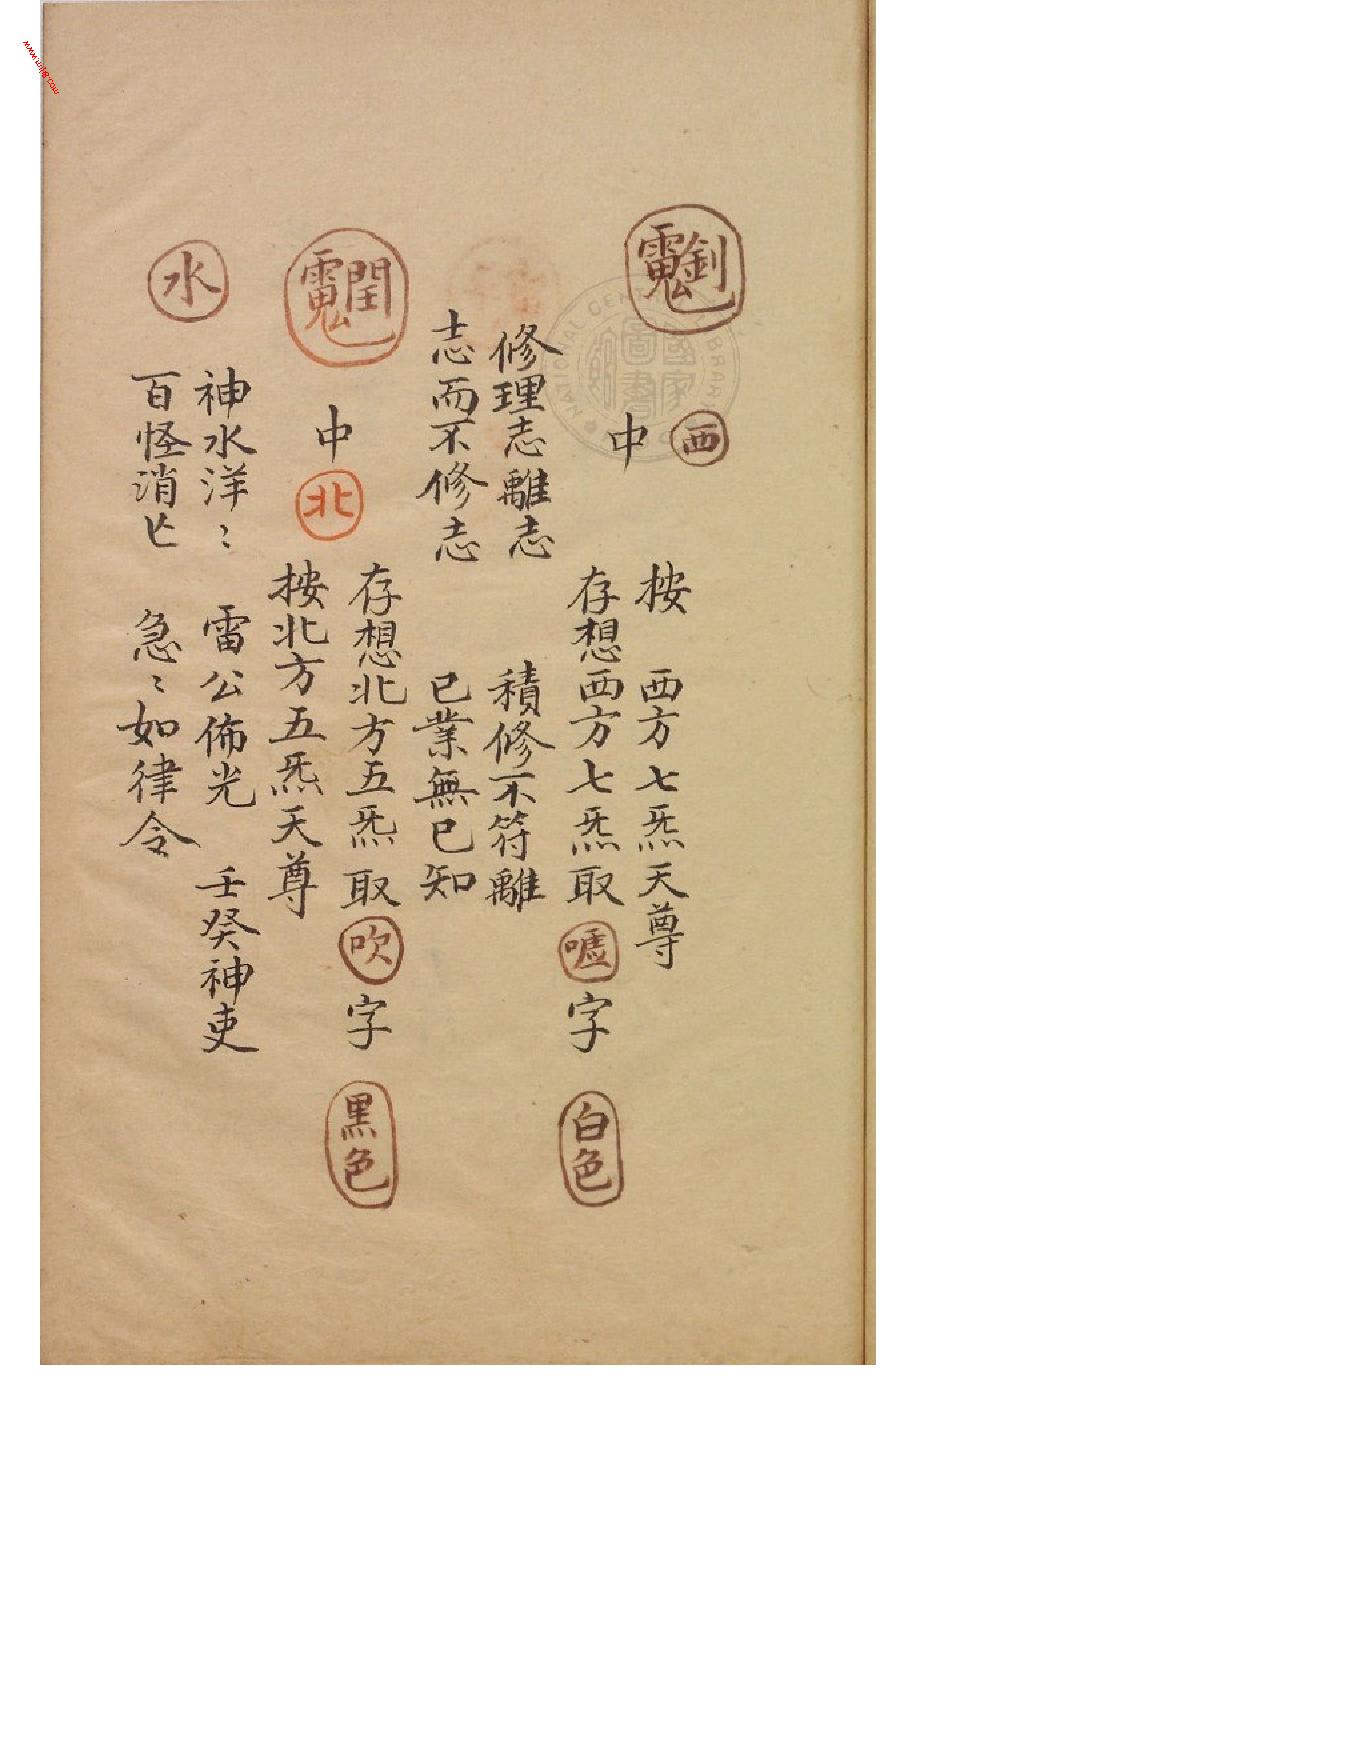 西
中
按 西方七炁天尊
存想西方七炁取噓字 白色
修理志離志 積修不符離
志而不修志 已業無已知
中
北
存想北方五炁取吹字 黑色
按北方五炁天尊
水
神水洋〻 雷公佈光 壬癸神吏
百怪消亡 急〻如律令
NATIONAL CENTRAL LIBRARY
國家圖書館